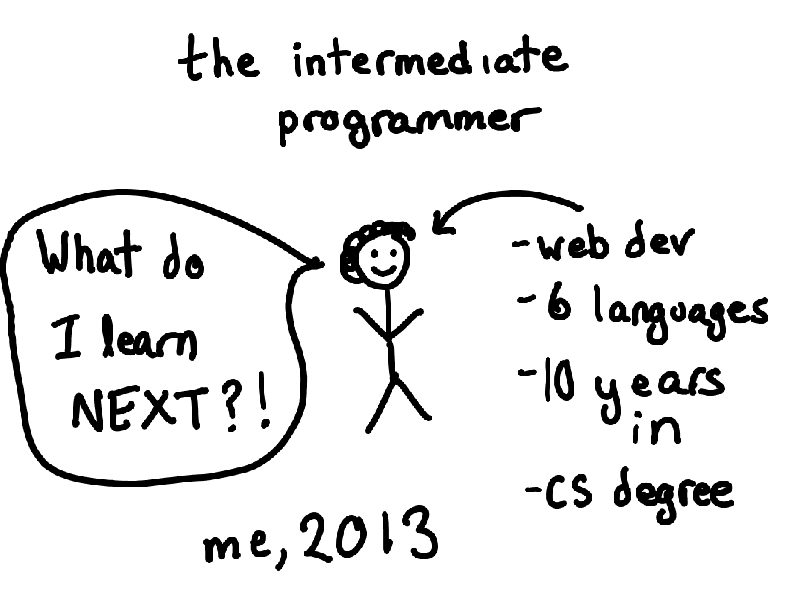 the intermediate
programmer
What do
I learn
NEXT?!
-web dev
-6 languages
-10 years
in
-CS degree
me, 2013